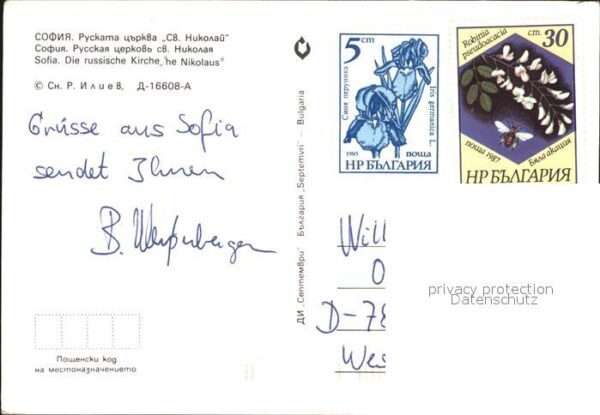 СОФИЯ. Руската църква „Св. Николай"
София. Русская церковь св. Николая
Sofia. Die russische Kirche „he Nikolaus"
© Сн. Р. Илиев, Д-16608-А
Grüsse aus Sofia
sendet Ihnen
B.
Пощенски код
на местоназначението
ДИ „Септември" България „Septemvri" — Bulgaria
5 ст
Синя перуника
Iris germanica L.
1985 поща
НР БЪЛГАРИЯ
ст. 30
Robinia
pseudoacacia
поща 1987
Бяла акация
НР БЪЛГАРИЯ
Will
O
D-78
Wes
privacy protection
Datenschutz